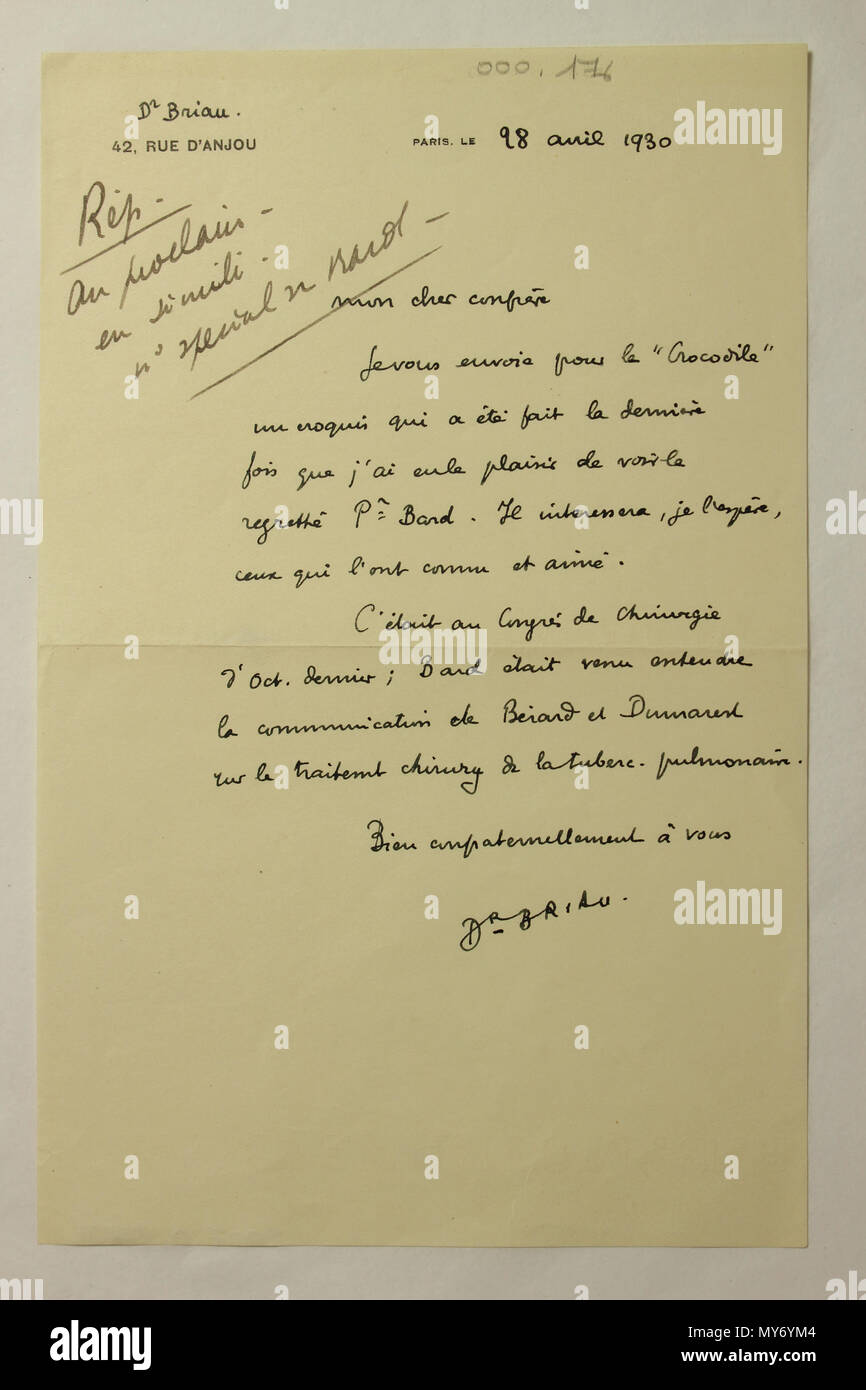 000.176
Dr Briau.
42, RUE D'ANJOU
PARIS, LE 28 avril 1930
Rép.
au prochain -
en simili -
n° spécial sr Bard -
mon cher confrère
Je vous envoie pour le "Crocodile"
un croquis qui a été fait la dernière
fois que j'ai eu le plaisir de voir le
regretté Pr Bard. Il interessera, je l'espère,
ceux qui l'ont connu et aimé.
C'était au Congrès de Chirurgie
d'Oct. dernier; Bard était venu entendre
la communication de Bérard et Dumarest
sur le traitemt chirurg de la tuberc. pulmonaire.
Bien confraternellement à vous
Dr BRIAU.
alamy
Image ID: MY6YM4
www.alamy.com